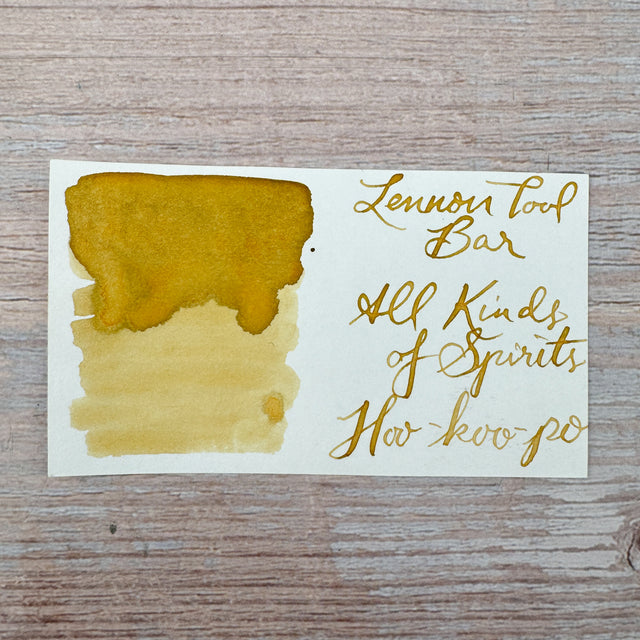 Lennon Tool
Bar
All Kinds
of Spirits
Hoo-koo-po